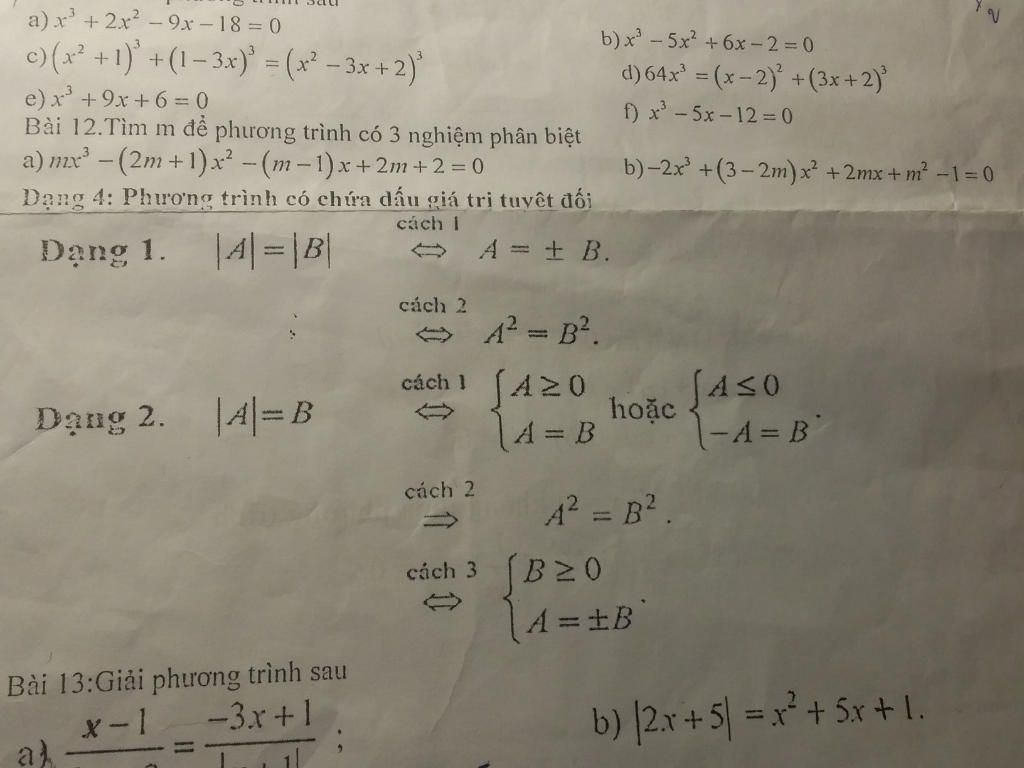 a) x³ + 2x² − 9x − 18 = 0
b) x³ − 5x² + 6x − 2 = 0
c) (x² + 1)³ + (1 − 3x)³ = (x² − 3x + 2)³
d) 64x³ = (x − 2)² + (3x + 2)³
e) x³ + 9x + 6 = 0
f) x³ − 5x − 12 = 0
Bài 12.Tìm m để phương trình có 3 nghiệm phân biệt
a) mx³ − (2m + 1)x² − (m − 1)x + 2m + 2 = 0
b) −2x³ + (3 − 2m)x² + 2mx + m² − 1 = 0
Dạng 4: Phương trình có chứa dấu giá trị tuyệt đối
Dạng 1. |A| = |B| cách 1 ⇔ A = ± B.
cách 2 ⇔ A² = B².
Dạng 2. |A| = B cách 1 ⇔ { A ≥ 0 A = B hoặc { A ≤ 0 −A = B .
cách 2 ⇒ A² = B².
cách 3 ⇔ { B ≥ 0 A = ±B .
Bài 13:Giải phương trình sau
a) x − 1 = −3x + 1 ;
b) |2x + 5| = x² + 5x + 1.